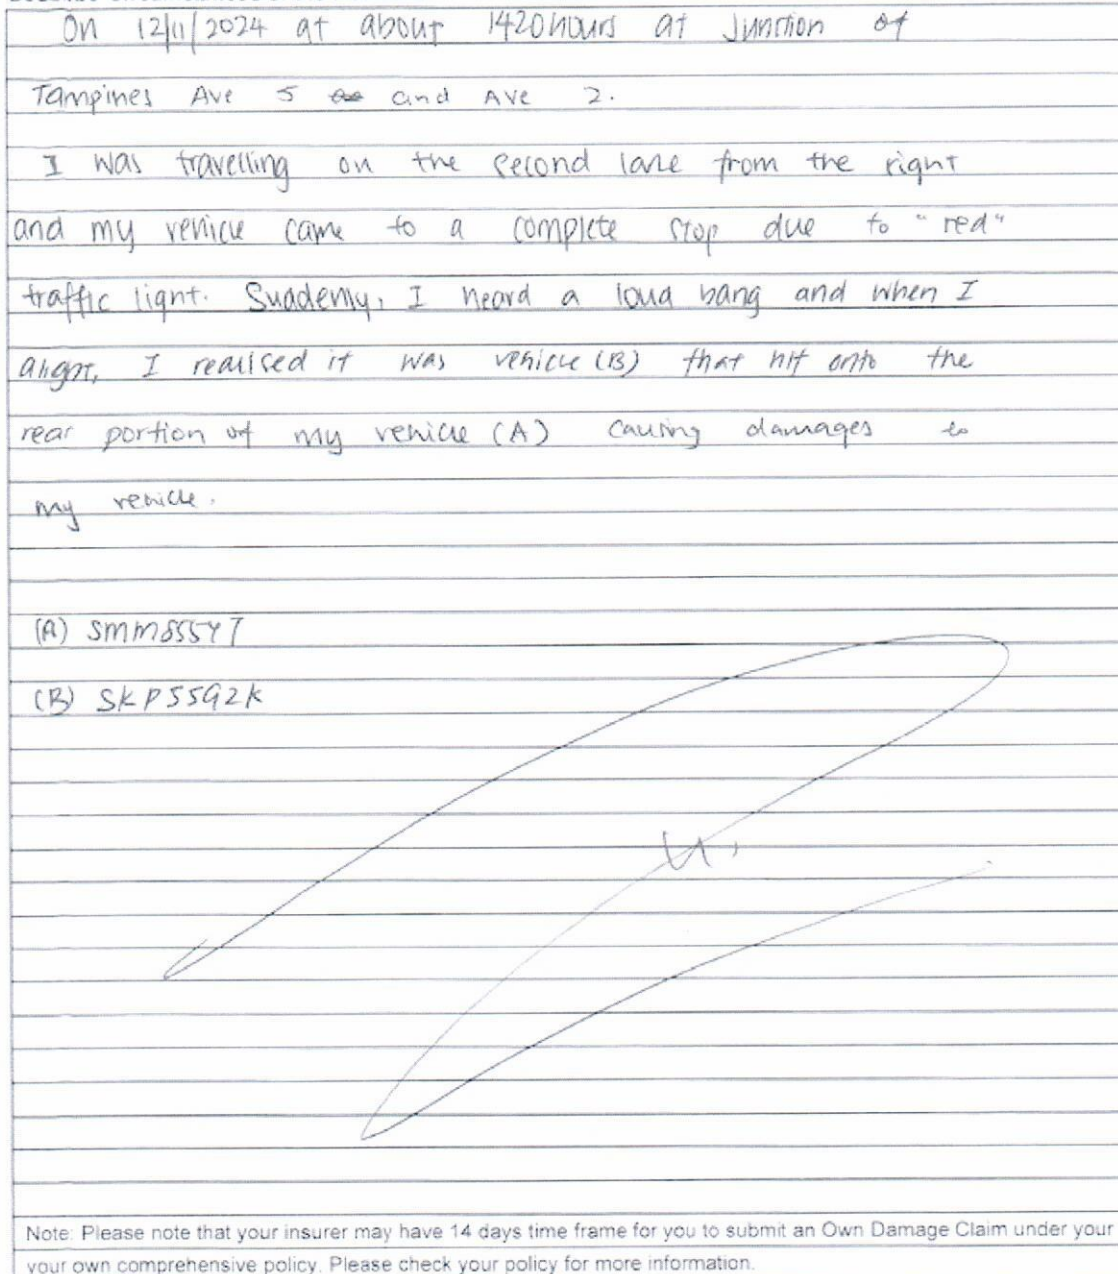 On 12/11/2024 at about 1420hours at Junction of
Tampines Ave 5 and Ave 2.
I was travelling on the second lane from the right
and my vehicle came to a complete stop due to "red"
traffic light. Suddenly, I heard a loud bang and when I
alight, I realised it was vehicle (B) that hit onto the
rear portion of my vehicle (A) causing damages to
my vehicle.
(A)
(B) SKP5592K
Note: Please note that your insurer may have 14 days time frame for you to submit an Own Damage Claim under your
your own comprehensive policy. Please check your policy for more information.